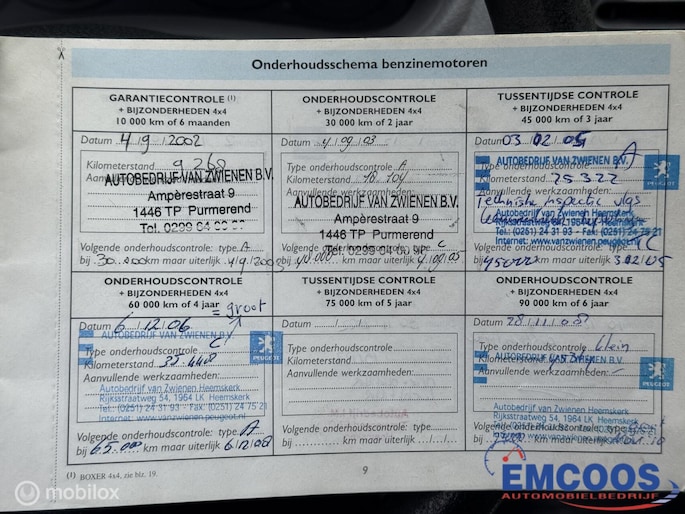 Onderhoudsschema benzinemotoren
GARANTIECONTROLE (1)
+ BIJZONDERHEDEN 4x4
10 000 km of 6 maanden
Datum 4/9/2002
Kilometerstand 9268
AUTOBEDRIJF VAN ZWIENEN B.V.
Ampèrestraat 9
1446 TP Purmerend
Tel. 0299
Volgende onderhoudscontrole: type A
bij 30.000 km maar uiterlijk 4/9/2003
ONDERHOUDSCONTROLE
+ BIJZONDERHEDEN 4x4
30 000 km of 2 jaar
Datum 4/09/03
Type onderhoudscontrole A
Kilometerstand
Aanvullende werkzaamheden:
AUTOBEDRIJF VAN ZWIENEN B.V.
Ampèrestraat 9
1446 TP Purmerend
Tel. 0299
Volgende onderhoudscontrole: type C
bij km maar uiterlijk
TUSSENTIJDSE CONTROLE
+ BIJZONDERHEDEN 4x4
45 000 km of 3 jaar
Datum 03/02/05
AUTOBEDRIJF VAN ZWIENEN B.V.
A
Kilometerstand 25322
PEUGEOT
Aanvullende werkzaamheden:
Technische inspectie vlgs
Autobedrijf van Zwienen Heemskerk
Tel.: (0251) 24 31 93 - Fax: (0251) 24 75 21
Internet: www.vanzwienen.peugeot.nl
C
bij 45000 km maar uiterlijk 3/02/05
ONDERHOUDSCONTROLE
+ BIJZONDERHEDEN 4x4
60 000 km of 4 jaar
= groot
Datum 6/12/06
AUTOBEDRIJF VAN ZWIENEN B.V.
Type onderhoudscontrole C
Kilometerstand
PEUGEOT
Aanvullende werkzaamheden:
Autobedrijf van Zwienen Heemskerk
Rijksstraatweg 54, 1964 LK Heemskerk
Tel.: (0251) 24 31 93 - Fax: (0251) 24 75 21
Internet: www.vanzwienen.peugeot.nl
Volgende onderhoudscontrole: type A
bij 65.000 km maar uiterlijk 6/12/08
TUSSENTIJDSE CONTROLE
+ BIJZONDERHEDEN 4x4
75 000 km of 5 jaar
Datum ....../....../......
Type onderhoudscontrole
Kilometerstand
Aanvullende werkzaamheden:
Volgende onderhoudscontrole: type
bij km maar uiterlijk .../.../...
ONDERHOUDSCONTROLE
+ BIJZONDERHEDEN 4x4
90 000 km of 6 jaar
Datum 28/11/08
Type onderhoudscontrole klein
AUTOBEDRIJF VAN ZWIENEN B.V.
Kilometerstand
PEUGEOT
Aanvullende werkzaamheden: -
Autobedrijf van Zwienen Heemskerk
Rijksstraatweg 54, 1964 LK Heemskerk
Tel.: (0251) 24 31 93 - Fax: (0251) 24 75 21
Volgende onderhoudscontrole: type
bij km maar uiterlijk
(1) BOXER 4x4, zie blz. 19.
9
EMCOOS
AUTOMOBIELBEDRIJF
mobilox